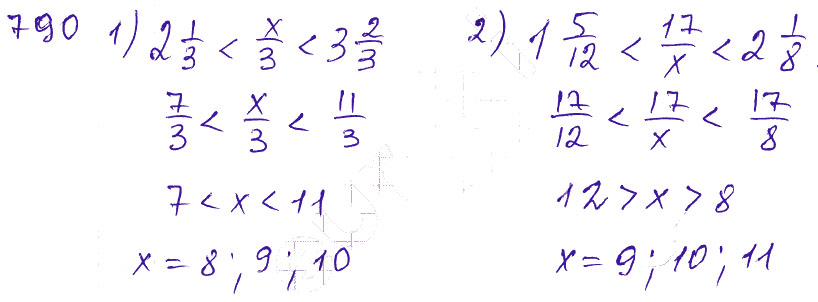 790 1) 2 1/3 < x/3 < 3 2/3
7/3 < x/3 < 11/3
7 < x < 11
x = 8; 9; 10
2) 1 5/12 < 17/x < 2 1/8
17/12 < 17/x < 17/8
12 > x > 8
x = 9; 10; 11